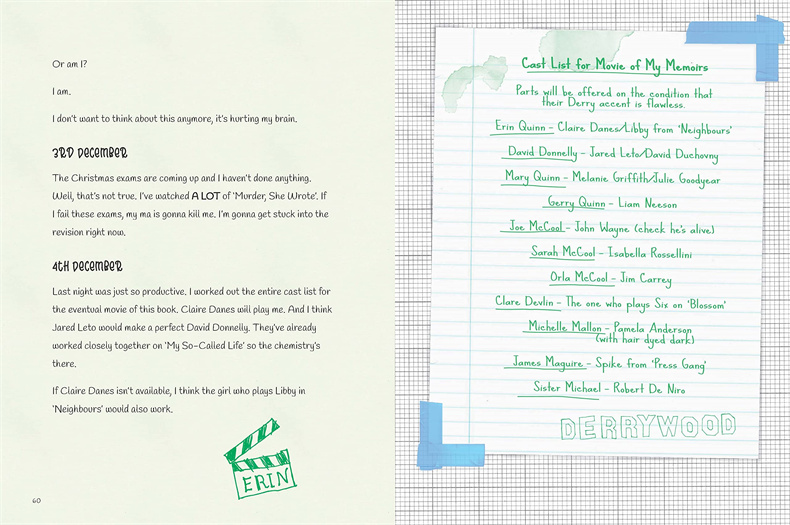 Or am I?
I am.
I don't want to think about this anymore, it's hurting my brain.
3RD DECEMBER
The Christmas exams are coming up and I haven't done anything.
Well, that's not true. I've watched A LOT of 'Murder, She Wrote'. If
I fail these exams, my ma is gonna kill me. I'm gonna get stuck into the
revision right now.
4TH DECEMBER
Last night was just so productive. I worked out the entire cast list for
the eventual movie of this book. Claire Danes will play me. And I think
Jared Leto would make a perfect David Donnelly. They've already
worked closely together on 'My So-Called Life' so the chemistry's
there.
If Claire Danes isn't available, I think the girl who plays Libby in
'Neighbours' would also work.
ERIN
60
Cast List for Movie of My Memoirs
Parts will be offered on the condition that
their Derry accent is flawless.
Erin Quinn – Claire Danes/Libby from 'Neighbours'
David Donnelly – Jared Leto/David Duchovny
Mary Quinn – Melanie Griffith/Julie Goodyear
Gerry Quinn – Liam Neeson
Joe McCool – John Wayne (check he's alive)
Sarah McCool – Isabella Rossellini
Orla McCool – Jim Carrey
Clare Devlin – The one who plays Six on 'Blossom'
Michelle Mallon – Pamela Anderson
(with hair dyed dark)
James Maguire – Spike from 'Press Gang'
Sister Michael – Robert De Niro
DERRYWOOD